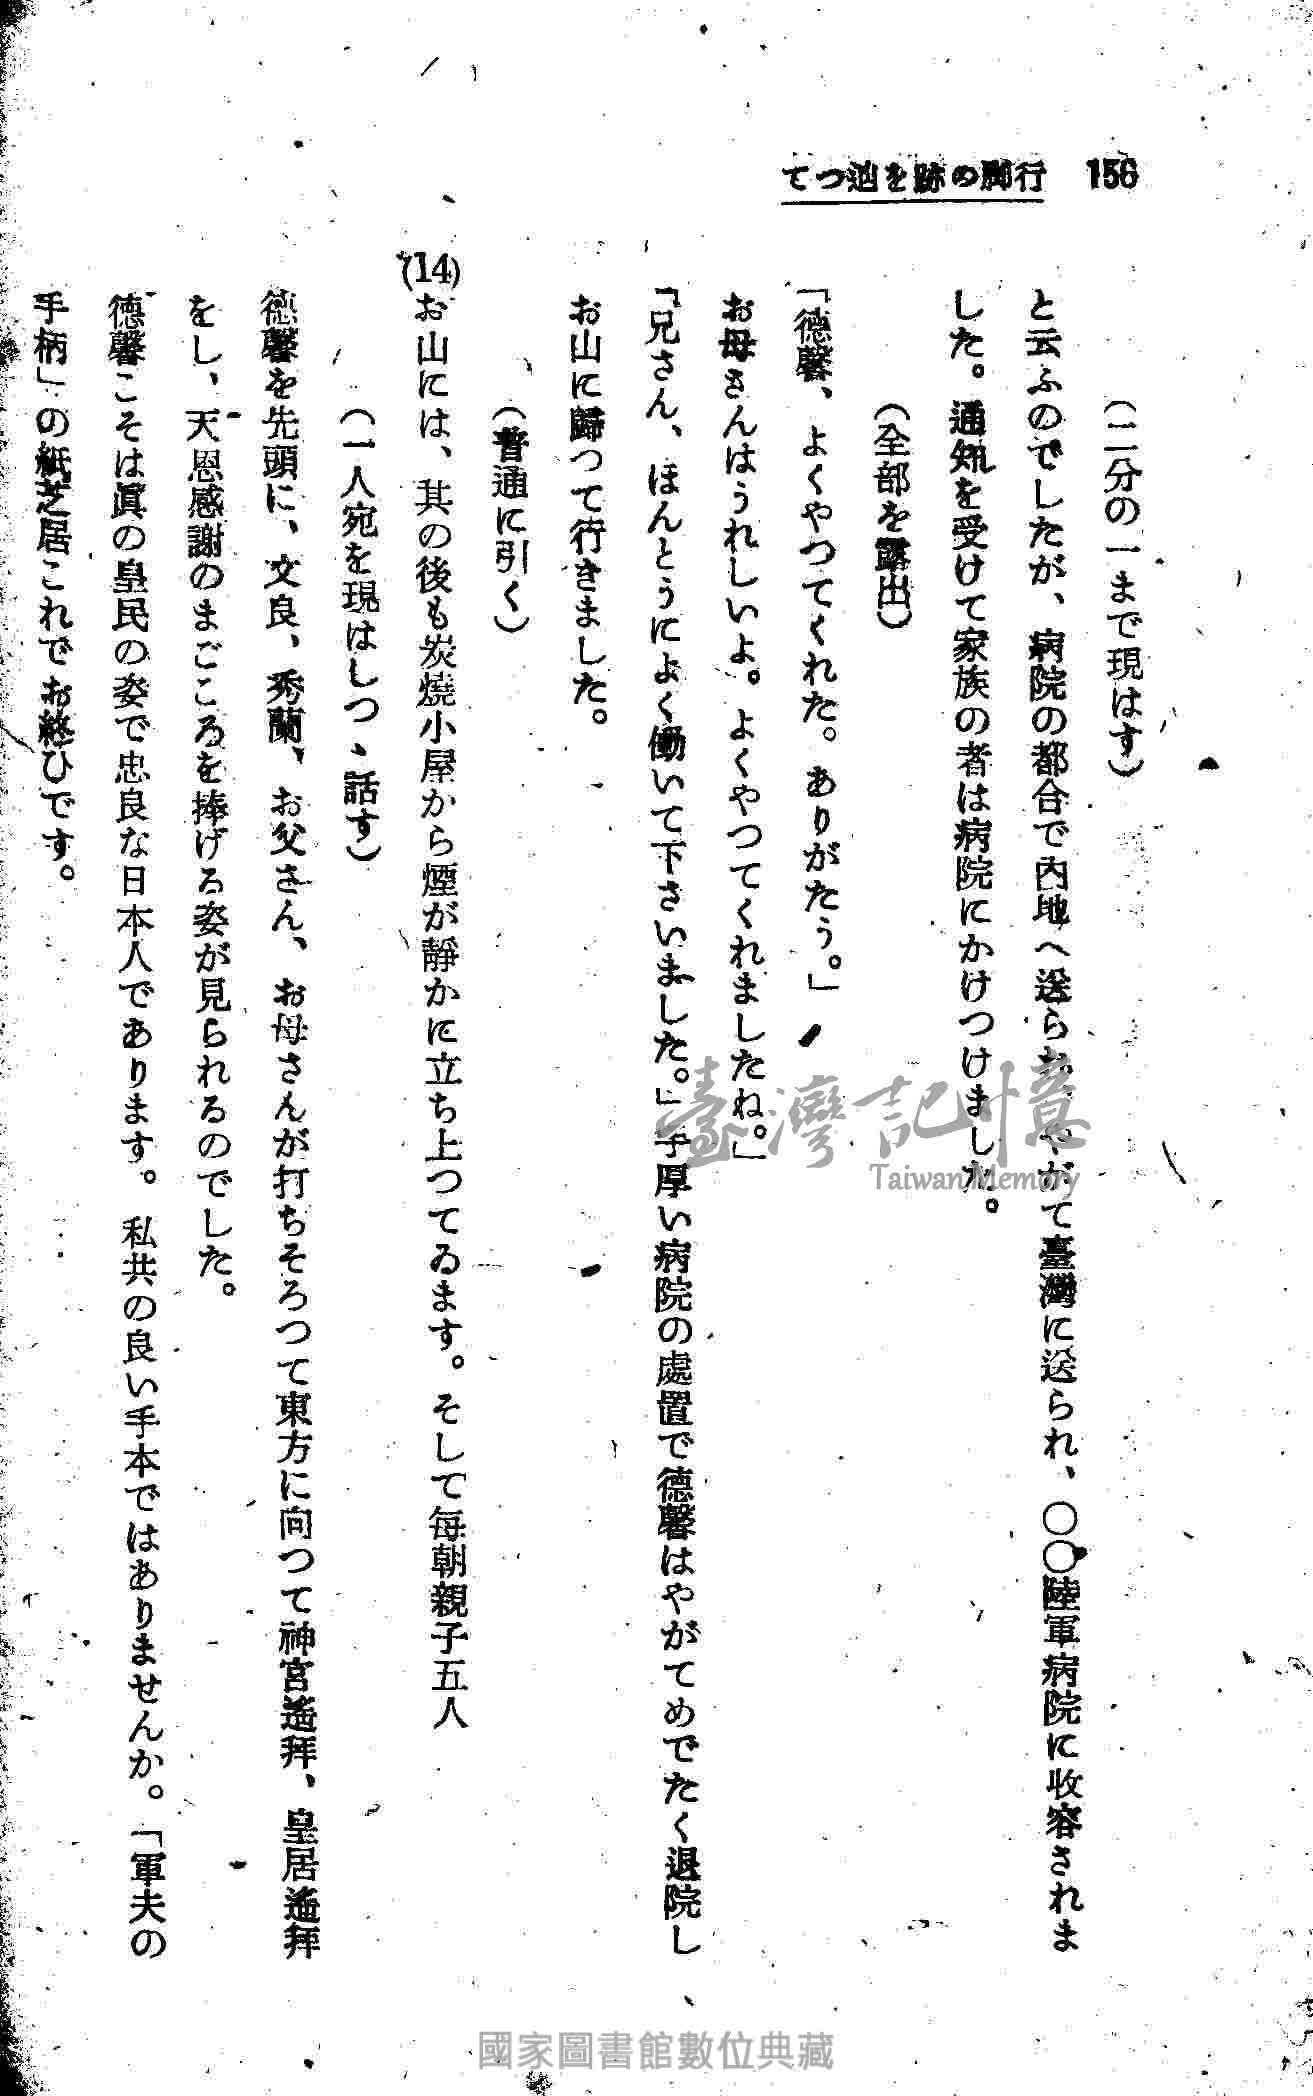 156 行脚の跡を辿つて
(二分の一まで現はす)
と云ふのでしたが、病院の都合で內地へ送られ、やがて臺灣に送られ、〇〇陸軍病院に收容されま
した。通知を受けて家族の者は病院にかけつけました。
(全部を露出)
「德馨、よくやつてくれた。ありがたう。」
お母さんはうれしいよ。よくやつてくれましたね。」
「兄さん、ほんとうによく働いて下さいました。」手厚い病院の處置で德馨はやがてめでたく退院し、
お山に歸つて行きました。
(普通に引く)
(14)
お山には、其の後も炭燒小屋から煙が靜かに立ち上つてゐます。そして每朝親子五人
(一人宛を現はしつゝ話す)
德馨を先頭に、文良、秀蘭、お父さん、お母さんが打ちそろつて東方に向つて神宮遙拜、皇居遙拜
をし、天恩感謝のまごころを捧げる姿が見られるのでした。
德馨こそは眞の皇民の姿で忠良な日本人であります。私共の良い手本ではありませんか。「軍夫の
手柄」の紙芝居これでお終ひです。
臺灣記憶
Taiwan Memory
國家圖書館數位典藏